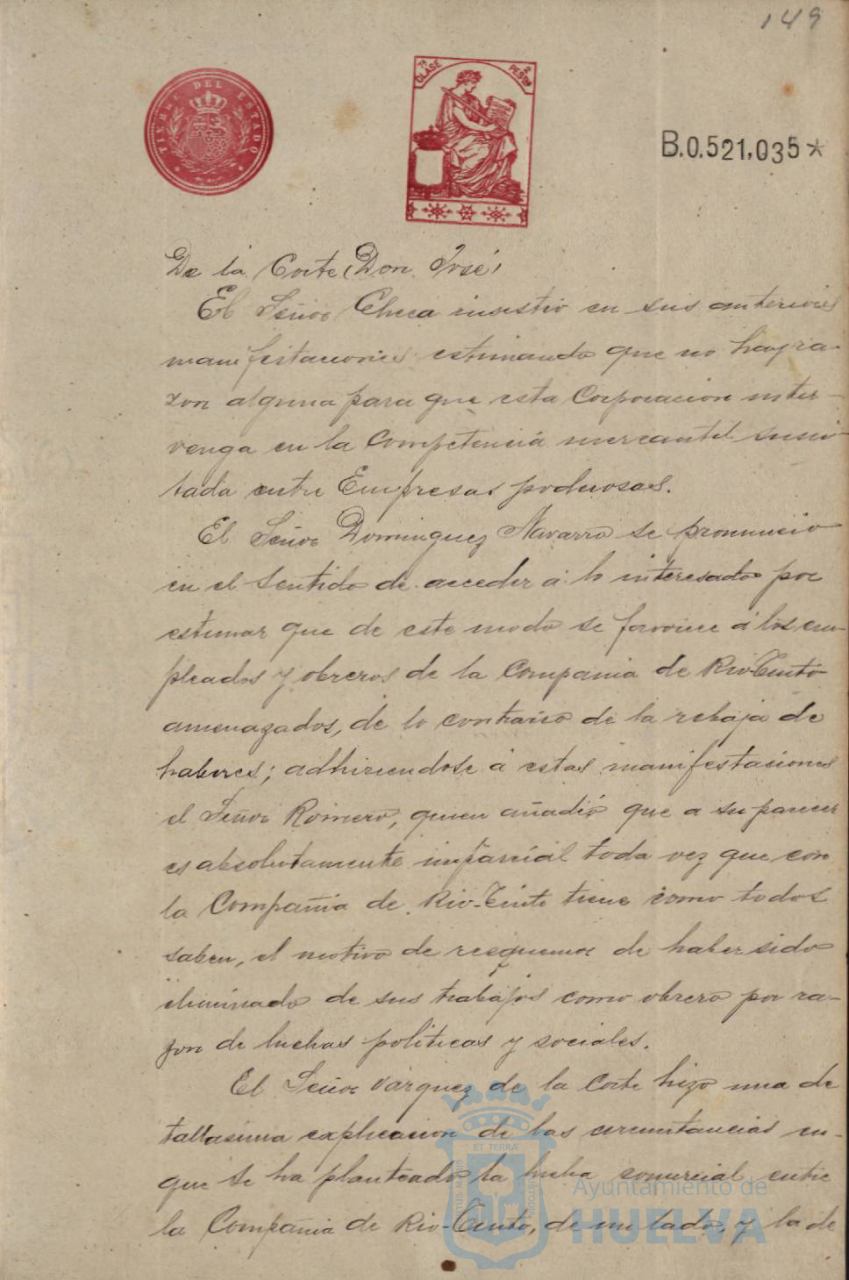 149
TIMBRE DEL ESTADO
7ª CLASE
2 PESTAS
B.0.521,035*
De la Corte (Don José)
El Señor Checa insistió en sus anteriores
manifestaciones estimando que no hay ra-
zon alguna para que esta Corporacion inter-
venga en la competencia mercantil susci-
tada entre Empresas poderosas.
El Señor Dominguez Navarro se pronunció
en el sentido de acceder á lo interesado por
estimar que de este modo se favorece á los em-
pleados y obreros de la Compañia de Rio-Tinto
amenazados, de lo contrario de la rebaja de
haberes; adhiriendose á estas manifestaciones
el Señor Romero, quien añadió que a su parecer
es absolutamente imparcial toda vez que con
la Compañia de Rio-Tinto tiene como todos
saben, el motivo de resquemor de haber sido
eliminado de sus trabajos como obrero por ra-
zon de luchas politicas y sociales.
El Señor Vazquez de la Corte hizo una de
tallasima explicacion de las circunstancias en-
que se ha planteado la lucha comercial entre
la Compañia de Rio-Tinto, de un lado, y la de
ET TERRA
Ayuntamiento de
HUELVA